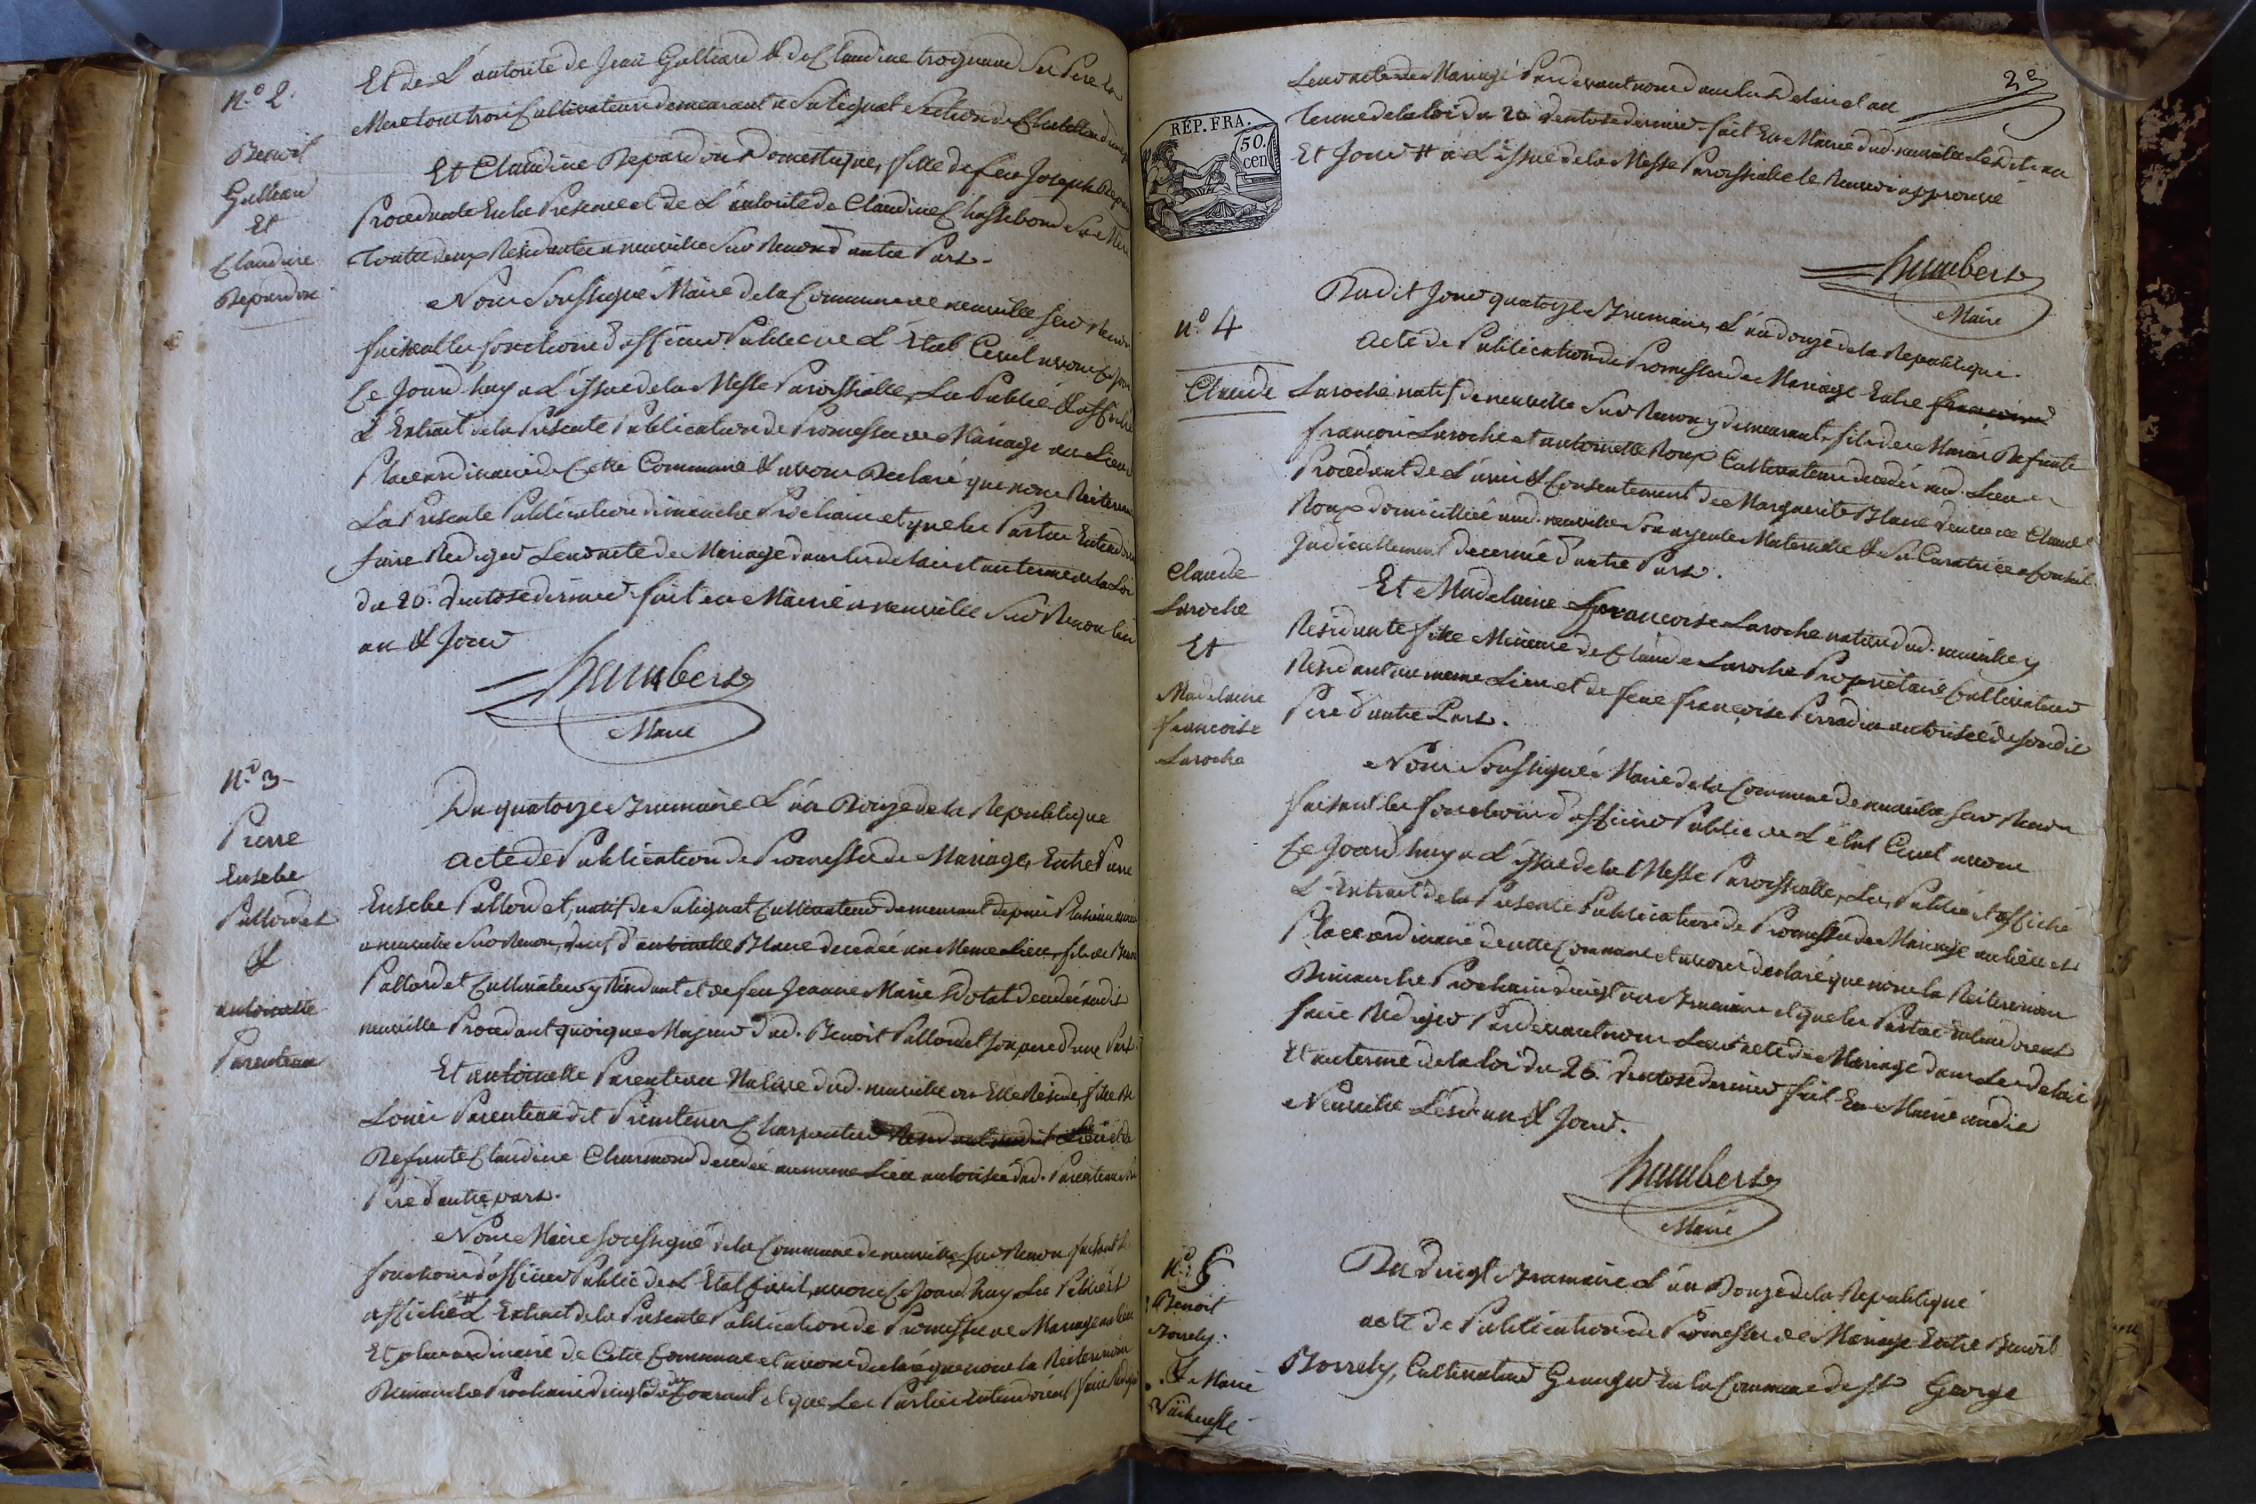 n.º 2.
Benoit
Galliard
Et
Claudine
Repardon
Et de L'autorité de Jean Galliard & de Claudine trognard Ses Pere Et
Mere tous trois Cultivateurs demeurant a Salignat Section de
Et Claudine Repardon Domestique, fille de feu Joseph
Procedante En la Presence et de L'autorité de Claudine Chassebond Sa Mere
toutes deux Residantes a neuville Sur Renon d'autre Part.
Nous Soussigné Maire de la Commune de neuville Sur Renon
faisant les fonctions d'officier Public de L'Etat Civil avons
Ce Jourd'huy a L'issue de la Messe Paroissialle, Lu Publié & affiché
L'Extrait de la Présente Publication de Promesses de Mariage au Lieu
Place ordinaire de Cette Commune & avons Declaré que nous Reitererons
La Présente Publication dimanche Prochain et que les Parties Entendoient
faire Rediger Leur acte de Mariage dans les delais et au terme de la Loi
du 20. Ventose dernier fait en Mairie a neuville Sur Renon Les
an & Jour
humbert
Maire
N.º 3
Pierre
Eusebe
Pallordet
&
antoinette
Parenteau
Du quatorze Frumaire L'an Douze de la Republique
acte de Publication de Promesses de Mariage, Entre Pierre
Eusebe Pallordet, natif de Salignat Cultivateur demeurant depuis Plusieurs
a neuville Sur Renon, Veuf d'antoinette Blanc decedée au Meme Lieu, fils de Benoit
Pallordet Cultivateur y Residant et de feue Jeanne Marie decedée audit
neuville Procedant quoique Majeur dud. Benoit Pallordet son pere d'une Part.
Et antoinette Parenteau Native dud. neuville ou Elle Reside, fille de
Louis Parenteau dit Printems Charpentier Lieu et de
Defunte Claudine Charmond decedée au meme Lieu autorisée dud. Parenteau
Pere d'autre part.
Nous Maire soussigné de la Commune de neuville Sur Renon faisant
fonctions d'officier Public de L'Etat Civil, avons Ce Jourd'huy Lu Publié et
affiché # L'Extrait de la Présente Publication de Promesses de Mariage au lieu
Et place ordinaire de Cette Commune et avons declaré que nous la Reitererions
Dimanche Prochain vingt Courant et que Les Parties Entendoient faire Rediger
2.e
RÉP. FRA.
50.
cen
Leur acte de Mariage Pardevant nous dans les Delais et au
terme de la Loi du 20 Ventose dernier fait En Mairie dud. neuville Lesdits an
Et Jour # a L'issue de la Messe Paroissialle le Renvoi approuvé
humbert
Maire
Dudit Jour quatorze Frumaire, L'an douze de la Republique.
n.º 4
Claude
acte de Publication de Promesses de Mariage Entre françois
Laroche natif de neuville Sur Renon y demeurant, fils des Mariés Defunts
françois Laroche et antoinette Roux Cultivateurs decedés aud. Lieu
Procedant de L'avis & Consentement de Marguerite Blanc Veuve de Claude
Roux domiciliée aud. neuville Son ayeule Maternelle & Sa Curatrice
Judiciellement decernée d'autre Part.
Claude
Laroche
Et
Madelaine
francoise
Laroche
Et Madelaine ffrancoise Laroche native dud. neuville y
Residante fille Mineure de Claude Laroche Proprietaire Cultivateur
Residant au meme Lieu et de feue françoise Perradin autorisée de sondit
Pere d'autre Part.
Nous Soussigné Maire de la Commune de neuville Sur Renon
faisant les fonctions d'officier Public de L'état Civil avons
Ce Jourd'huy a L'issue de la Messe Paroissialle, Lu, Publié et affiché
L'Extrait de la Présente Publication de Promesses de Mariage au lieu et
Place ordinaire de cette Commune et avons declaré que nous la Reitererions
Dimanche Prochain vingt un Frumaire et que les Parties Entendoient
faire Rediger Pardevant nous Leur acte de Mariage dans Les delais
Et au terme de la Loi du 20. Ventose dernier fait En Mairie audit
Neuville Lesd. an & Jour.
humbert
Maire
N.º 5
Benoit
Borrely.
& Marie
Du vingt Frumaire L'an Douze de la Republique
acte de Publication de Promesses de Mariage Entre Benoit
Borrely, Cultivateur Granger En la Commune de St George